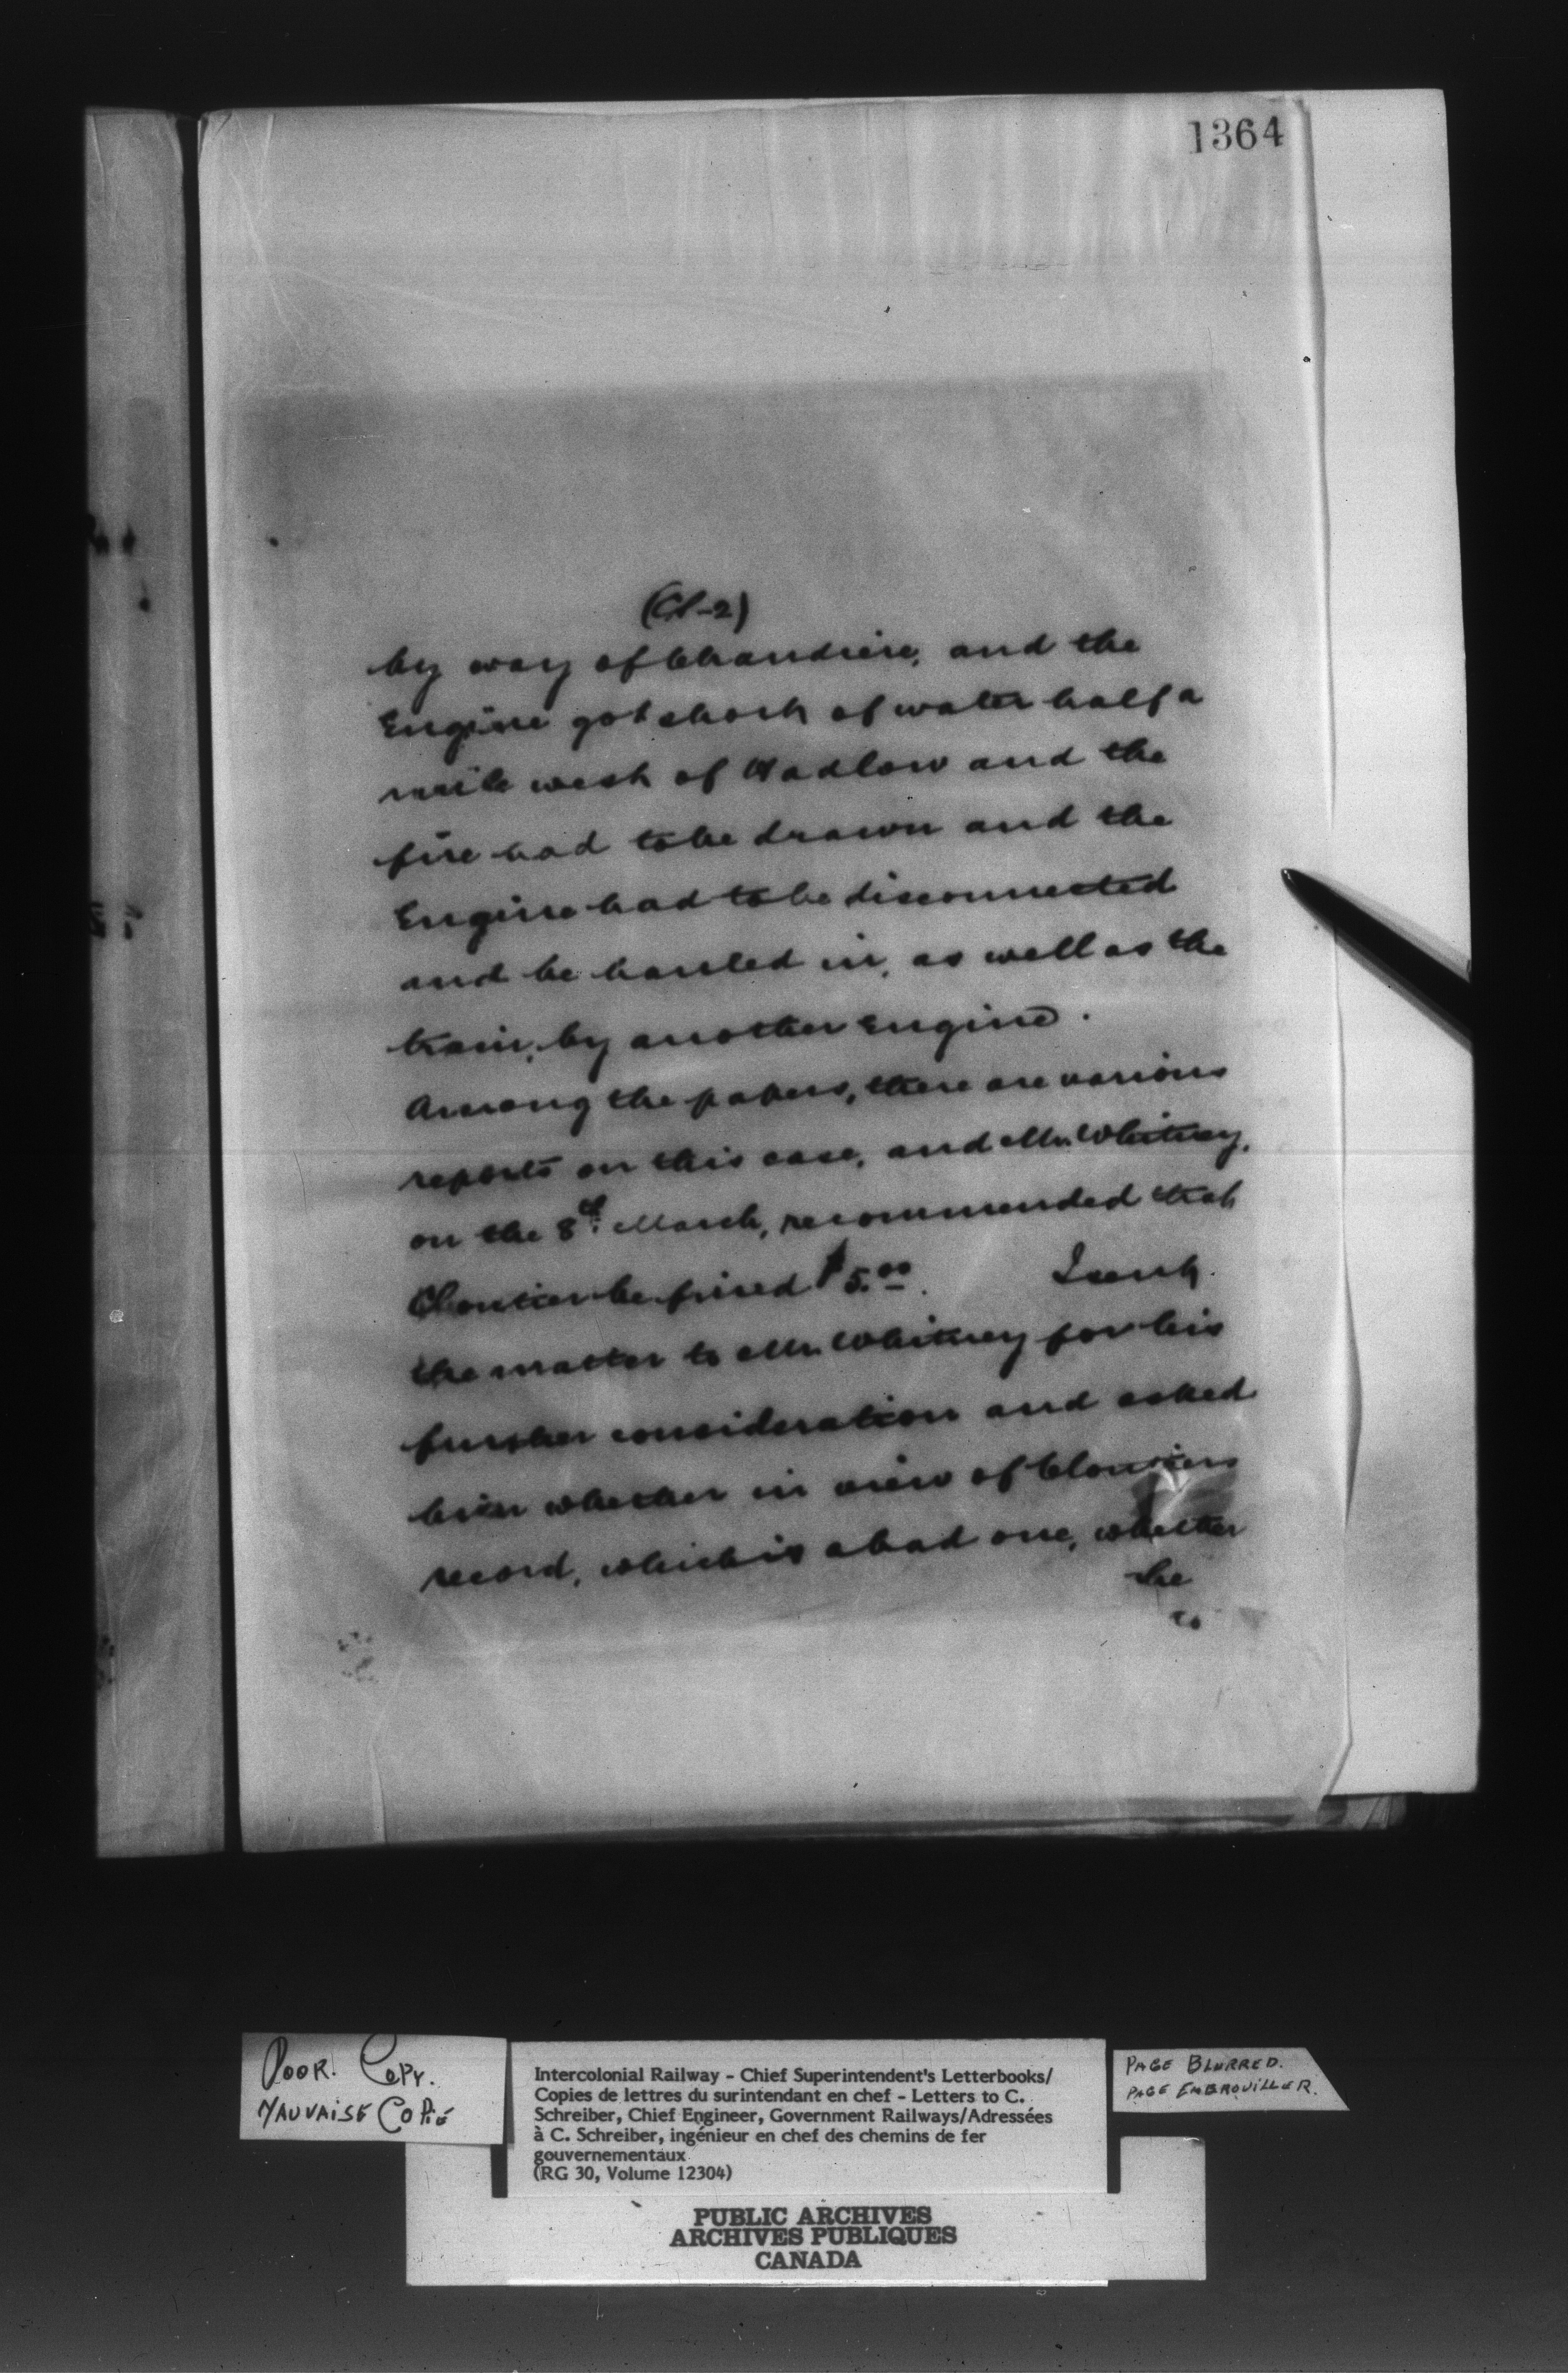 1364
by way of Chaudiere, and the
Engine got short of water half a
mile west of Hadlow and the
fire had to be drawn and the
Engine had to be disconnected
and be hauled in, as well as the
train, by another Engine.
Among the papers, there are various
reports on this case, and Mr. Whitney,
on the 8th March, recommended that
Cloutier be fined $5.00. I sent
the matter to Mr. Whitney for his
further consideration and asked
him whether in view of Cloutiers
record, which is a bad one, whether
he
POOR. COPY.
MAUVAISE COPIE
Intercolonial Railway - Chief Superintendent's Letterbooks/
Copies de lettres du surintendant en chef - Letters to C.
Schreiber, Chief Engineer, Government Railways/Adressées
à C. Schreiber, ingénieur en chef des chemins de fer
gouvernementaux
(RG 30, Volume 12304)
PAGE BLURRED.
PAGE EMBROUILLER.
PUBLIC ARCHIVES
ARCHIVES PUBLIQUES
CANADA